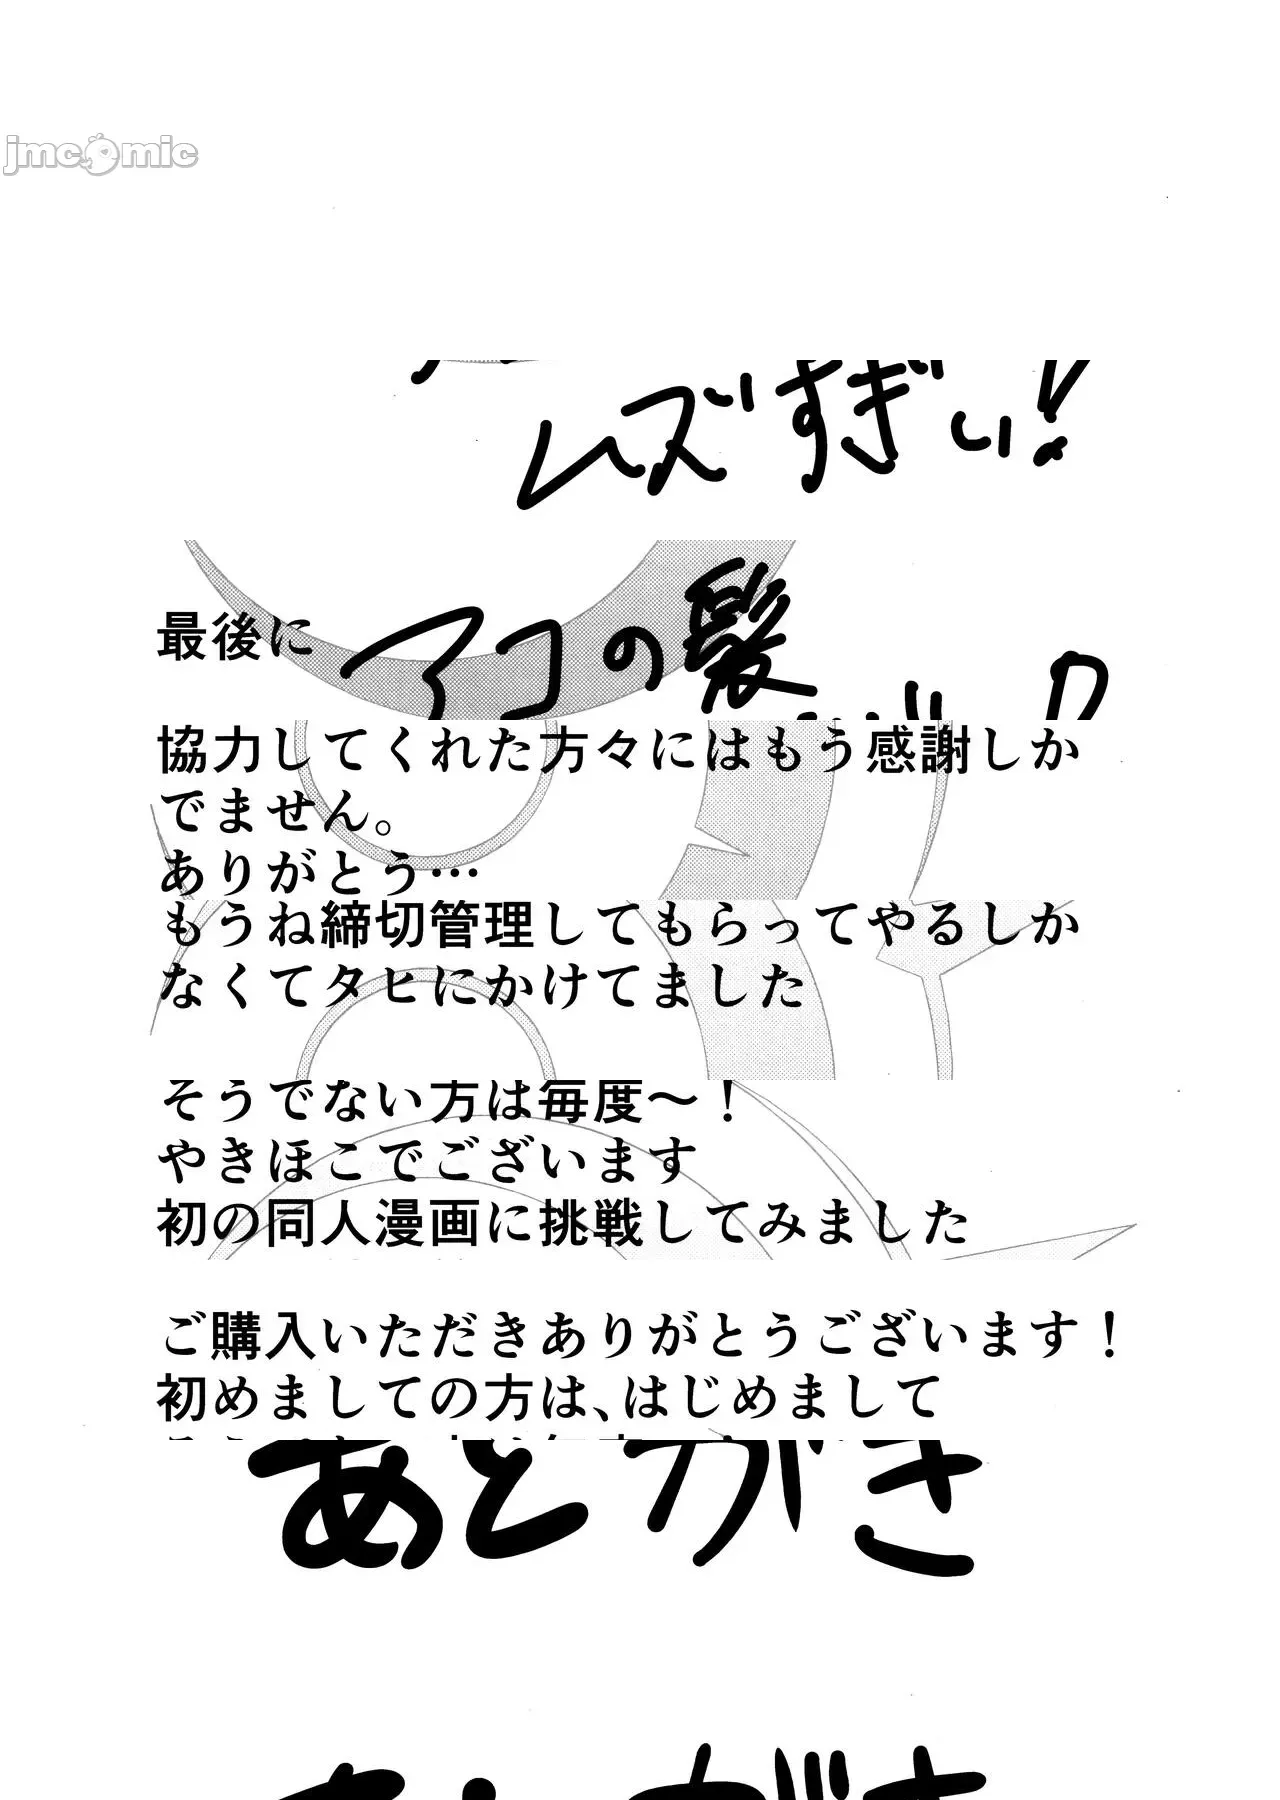 jmcomic
ムズすぎぃ!
最後に
アコの髪
協力してくれた方々にはもう感謝しか
でません。
ありがとう…
もうね締切管理してもらってやるしか
なくてタヒにかけてました
そうでない方は毎度～！
やきほこでございます
初の同人漫画に挑戦してみました
ご購入いただきありがとうございます！
初めましての方は、はじめまして
あとがき